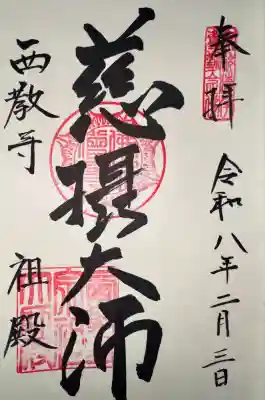 奉拝
令和八年二月三日
慈摂大師
西教寺
祖殿